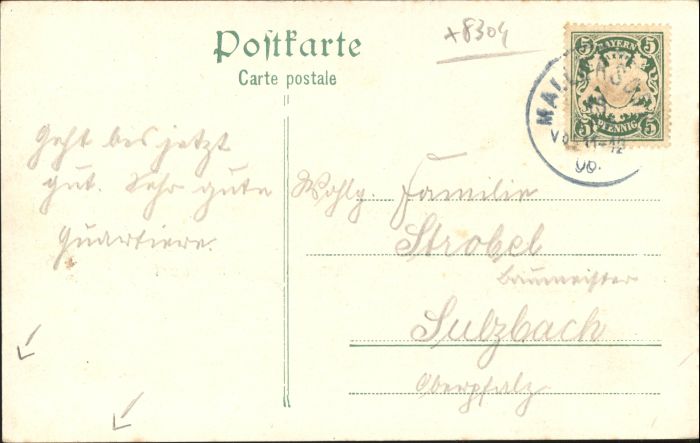 Postkarte
Carte postale
+8304
5 BAYERN 5
5 PFENNIG 5
Geht bis jetzt
gut. Sehr gute
Quartiere.
Wohlg. Familie
Strobel
Baumeister
Sulzbach
Oberpfalz